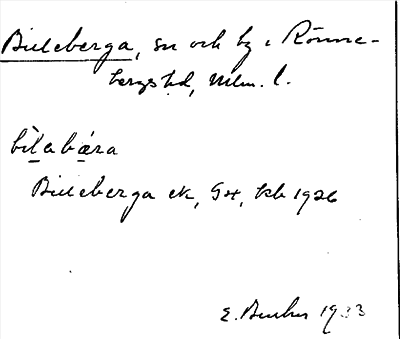 Billeberga, sn och by i Rönne-
bergs hd, Mlm. l.
bìlabǽra
Billeberga ek, Gx, kb 1926
E. 1933